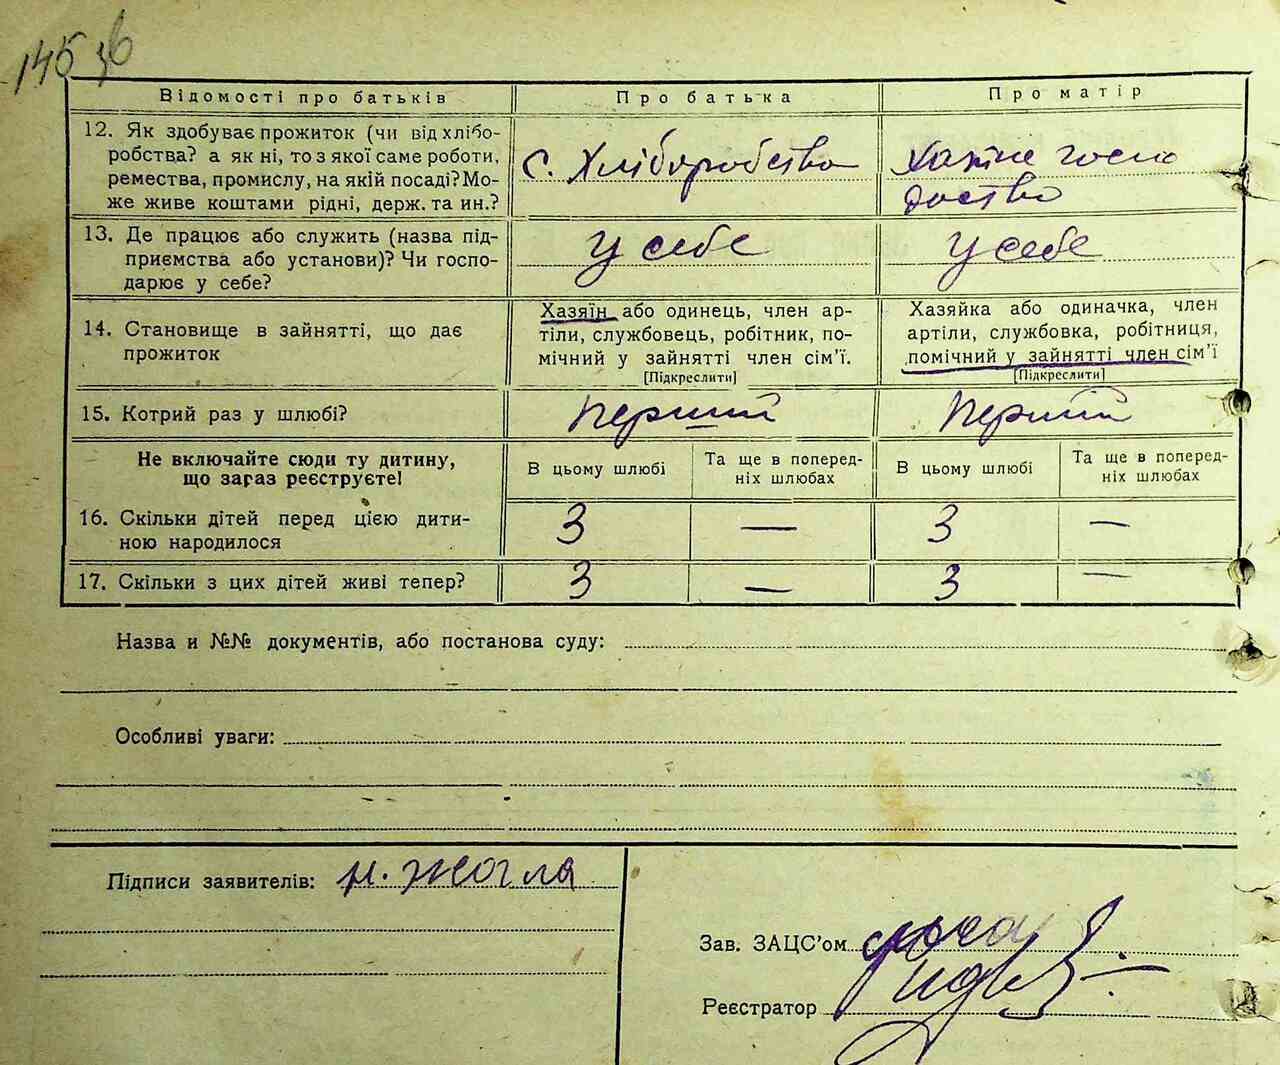 145 зв
Відомості про батьків
Про батька
Про матір
12. Як здобуває прожиток (чи від хлібо-
робства? а як ні, то з якої саме роботи,
ремества, промислу, на якій посаді? Мо-
же живе коштами рідні, держ. та ин.?
с. Хліборобство
Хатне госпо
дрство
13. Де працює або служить (назва під-
приємства або установи)? Чи госпо-
дарює у себе?
У себе
У себе
14. Становище в зайнятті, що дає
прожиток
Хазяїн або одинець, член ар-
тіли, службовець, робітник, по-
мічний у зайнятті член сім'ї.
[Підкреслити]
Хазяйка або одиначка, член
артіли, службовка, робітниця,
помічний у зайнятті член сім'ї
[Підкреслити]
15. Котрий раз у шлюбі?
Перший
Перший
Не включайте сюди ту дитину,
що зараз реєструєте!
В цьому шлюбі
Та ще в поперед-
ніх шлюбах
В цьому шлюбі
Та ще в поперед-
ніх шлюбах
16. Скільки дітей перед цією дити-
ною народилося
3
—
3
—
17. Скільки з цих дітей живі тепер?
3
—
3
—
Назва и №№ документів, або постанова суду:
Особливі уваги:
Підписи заявителів: н. Жогла
Зав. ЗАЦС'ом
Реєстратор